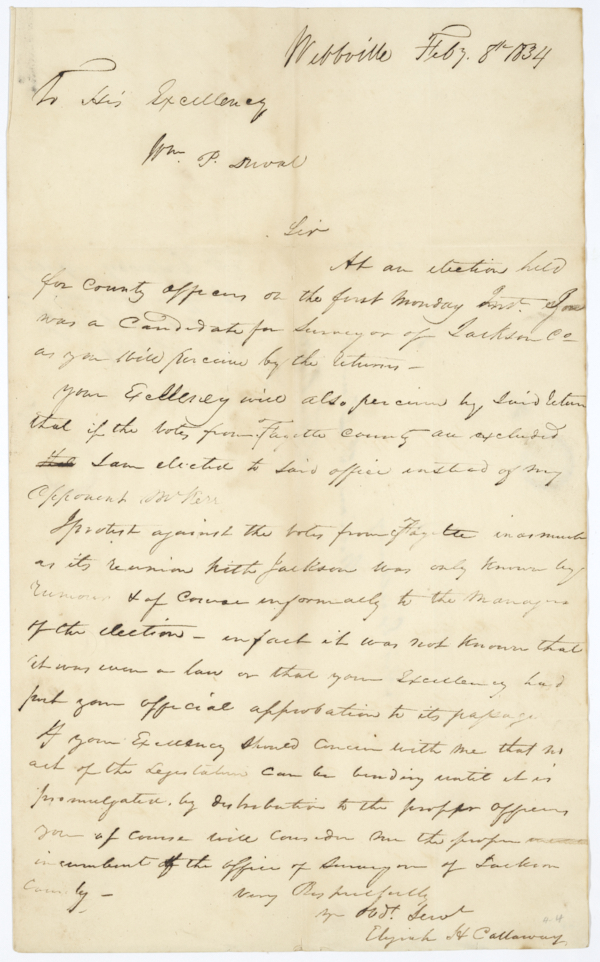 Webbville Feby. 8th 1834
To His Excellency
Wm. P. Duval
Sir
At an election held
for County officers on the first Monday Inst. I
was a Candidate for Surveyor of Jackson Co
as you will perceive by the returns –
Your Excellency will also perceive by said return
that if the votes from Fayette County are excluded
I am elected to said office instead of my
opponent Mr Kerr
I protest against the votes from Fayette inasmuch
as its reunion with Jackson was only known by
rumour & of course informally to the Managers
of the election – infact it was not known that
it was even a law or that your Excellency had
put your official approbation to its passage
If your Excellency should concur with me that no
act of the Legislature can be binding until it is
promulgated, by distribution to the proper officers
you of course will consider me the proper
incumbent of the office of Surveyor of Jackson
County –
Very Respectfully
yr Obdt. Servt
Elijah H Callaway